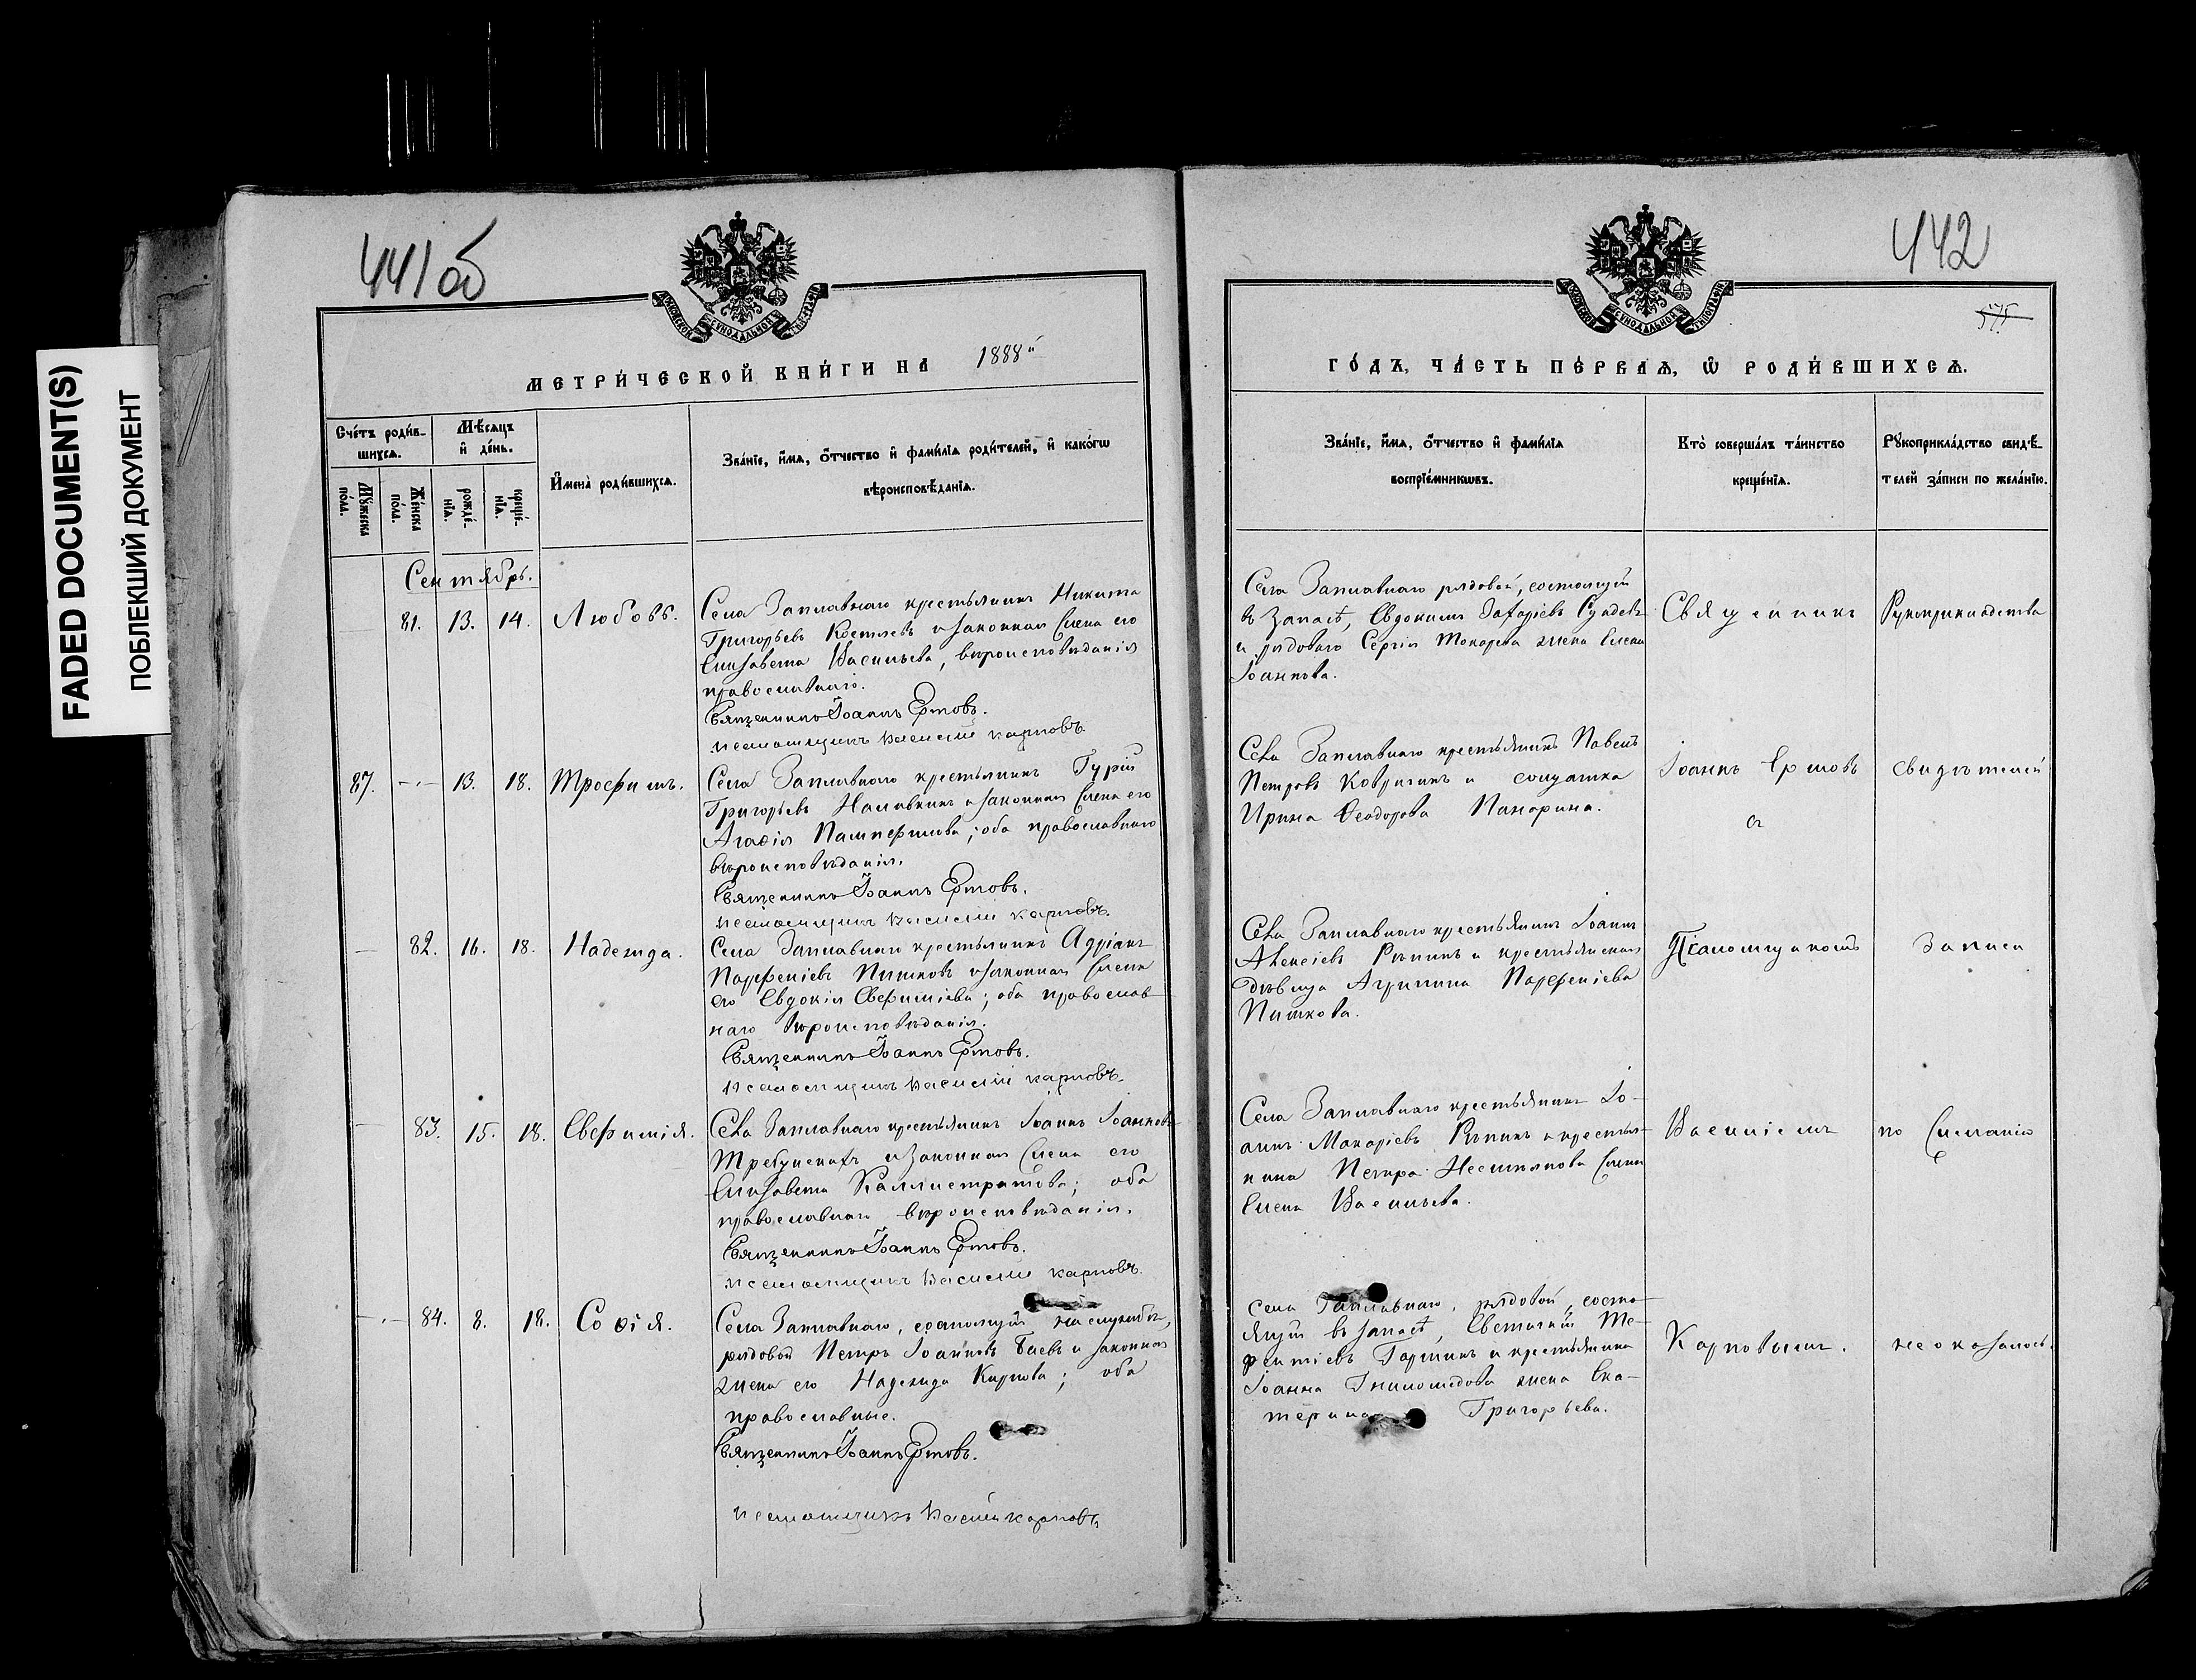 FADED DOCUMENT(S)
ПОБЛЕКШИЙ ДОКУМЕНТ
441 об
МЕТРИ́ЧЕСКОЙ КНИ́ГИ НА 1888й
Сче́тъ роди́в-
шихсѧ.
Мѣ́сѧцъ
и҆ де́нь.
Мꙋ́жеска
по́ла.
Же́нска
по́ла.
рожде́-
нїѧ.
креще́-
нїѧ.
И҆мена̀ роди́вшихсѧ.
Зва́нїе, и҆́мѧ, ѻ҆́тчество и҆ фами́лїѧ роди́телей, и҆ како́гѡ
вѣроисповѣ́данїѧ.
Сентябрь.
81. 13. 14. Любовь.
Села Заплавнаго крестьянинъ Никита
Григорьевъ Костяевъ и законная жена его
Елизавета Васильева, вѣроисповѣданія
православнаго.
Священникъ Іоаннъ Ершовъ.
псаломщикъ Василій Карповъ
87. -·- 13. 18. Трофимъ.
Села Заплавнаго крестьянинъ Гурій
Григорьевъ Наливкинъ и законная жена его
Агаѳія Памфилова; оба православнаго
вѣроисповѣданія.
Священникъ Іоаннъ Ершовъ.
псаломщикъ Василій Карповъ.
— 82. 16. 18. Надежда.
Села Заплавнаго крестьянинъ Адріанъ
Парфеніевъ Пишковъ и законная жена
его Евдокія Евфиміева; оба православ-
наго вѣроисповѣданія.
Священникъ Іоаннъ Ершовъ.
псаломщикъ Василій Карповъ.
— 83. 15. 18. Евфимія.
Села Заплавнаго крестьянинъ Іоаннъ Іоанновъ
и законная жена его
Елизавета Каллистратова; оба
православнаго вѣроисповѣданія.
Священникъ Іоаннъ Ершовъ.
псаломщикъ Василій Карповъ.
-·- 84. 8. 18. Софія.
Села Заплавнаго, состоящій на службѣ,
рядовой Петръ Іоанновъ Баевъ и законная
жена его Надежда Карпова; оба
православные.
Священникъ Іоаннъ Ершовъ.
псаломщикъ Василій Карповъ
442
ГО́ДЪ, ЧА́СТЬ ПЕ́РВАѦ, Ѽ РОДИ́ВШИХСѦ.
Зва́нїе, и҆́мѧ, ѻ҆́тчество и҆ фами́лїѧ
воспрїе́мникѡвъ.
Кто̀ соверша́лъ та́инство
креще́нїѧ.
Рꙋкоприкла́дство свидѣ́-
телей за́писи по жела́нїю.
Села Заплавнаго рядовой, состоящій
въ запасѣ, Евдокимъ Захаріевъ
и рядоваго Сергія Токарева жена Елена
Іоаннова.
Села Заплавнаго крестьянинъ Павелъ
Петровъ Ковригинъ и солдатка
Ирина Ѳеодорова Панарина.
Села Заплавнаго крестьянинъ Іоаннъ
Алексіевъ Рѣпинъ и крестьянская
дѣвица Агрипина Парфеніева
Пишкова.
Села Заплавнаго крестьянинъ Іо-
аннъ Макаріевъ Рѣпинъ и крестья-
нина Петра жена
Елена Васильева.
Села Заплавнаго, рядовой, состо-
ящій въ запасѣ, Те-
рентіевъ и крестьянина
Іоанна жена Ека-
терина Григорьева.
Священникъ
Іоаннъ Ершовъ
съ
Псаломщикомъ
Василіемъ
Карповымъ.
Рукоприкладства
свидѣтелей
записи
по желанію
не оказалось.